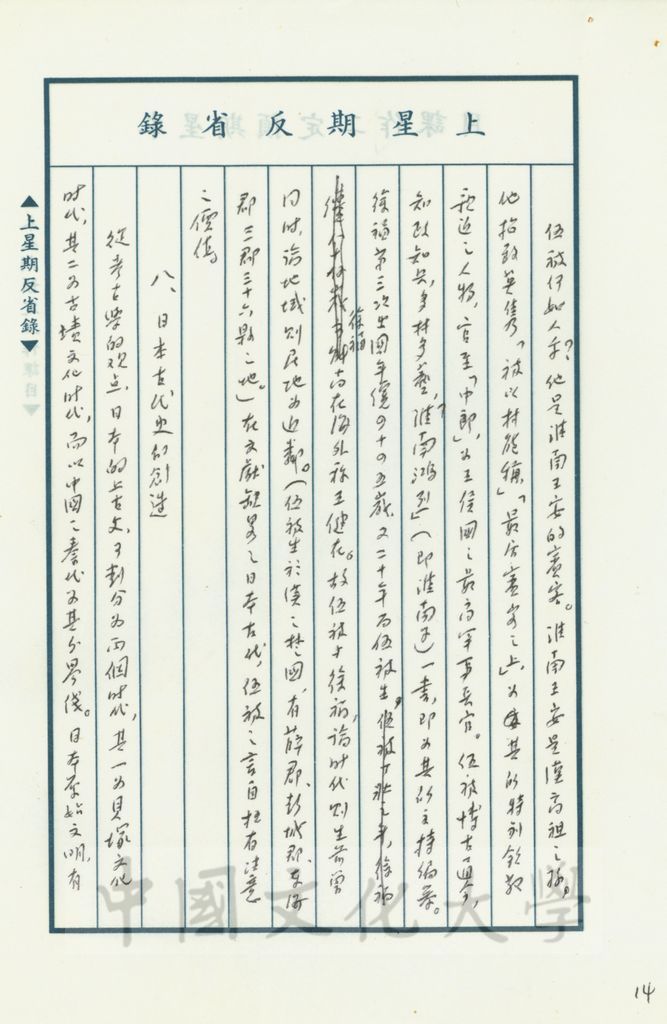 上星期反省錄
伍被何如人乎?他是淮南王安的賓客。淮南王安是漢高祖之孫。
他招致英雋,「被以材能稱」,「最居賓客之上」,為其的特別欽敬
親近之人物,官至「中郎」,為王侯國之最高軍事長官。伍被博古通今,
知政知兵,多材多藝,「淮南鴻烈」(即淮南子)一書,即為其所主持編纂。
徐福第三次出國年僅四十四五歲,又二十年而伍被生,徐福
徐福尚在海外稱王健在。故伍被于徐福,論時代則生前曾
同時,論地域則居地為近鄰。(伍被生於漢之楚國,有薛郡、彭城郡、東海
郡三郡三十六縣之地。)在文獻缺略之日本古代,伍被之言自極有注意
之價值。
八、日本古代史的創造
從考古學的观点,日本的上古史,可劃分為兩個时代,其一为貝塚文化
时代,其二为古墳文化时代,而以中國之秦代为其分界线。日本原始文明,有
▲上星期反省錄▼
中國文化大學
14